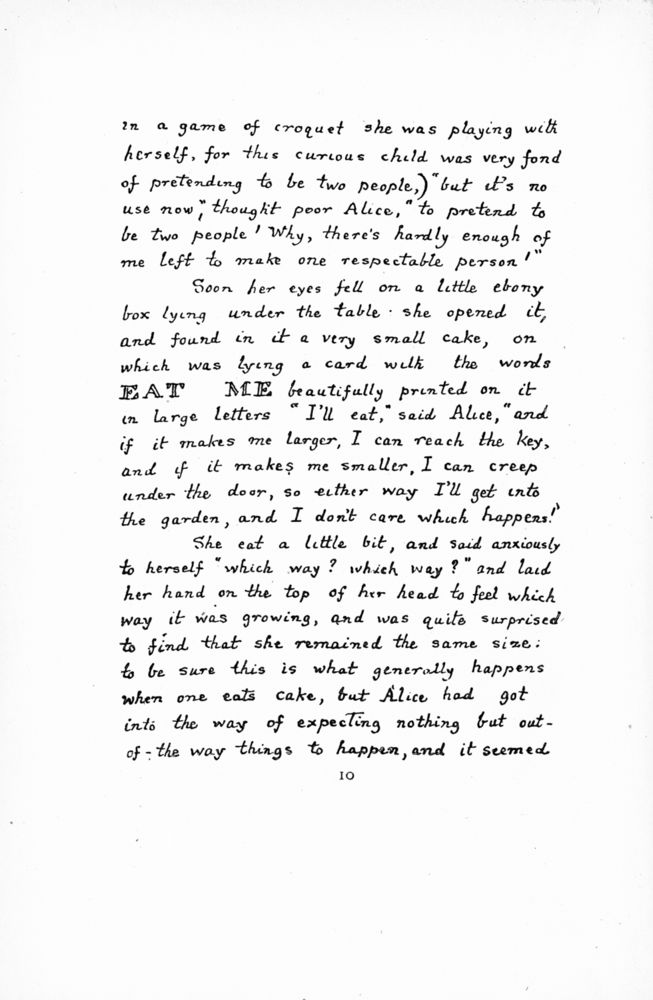 in a game of croquet she was playing with
herself, for this curious child was very fond
of pretending to be two people,) "but it's no
use now," thought poor Alice, "to pretend to
be two people! Why, there's hardly enough of
me left to make one respectable person!"
Soon her eyes fell on a little ebony
box lying under the table: she opened it,
and found in it a very small cake, on
which was lying a card with the words
EAT ME beautifully printed on it
in large letters "I'll eat," said Alice, "and
if it makes me larger, I can reach the key,
and if it makes me smaller, I can creep
under the door, so either way I'll get into
the garden, and I don't care which happens!"
She eat a little bit, and said anxiously
to herself "which way? which way?" and laid
her hand on the top of her head to feel which
way it was growing, and was quite surprised
to find that she remained the same size:
to be sure this is what generally happens
when one eats cake, but Alice had got
into the way of expecting nothing but out-
of-the way things to happen, and it seemed
10